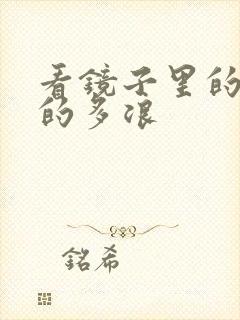 看镜子里的
的多浪
銘希